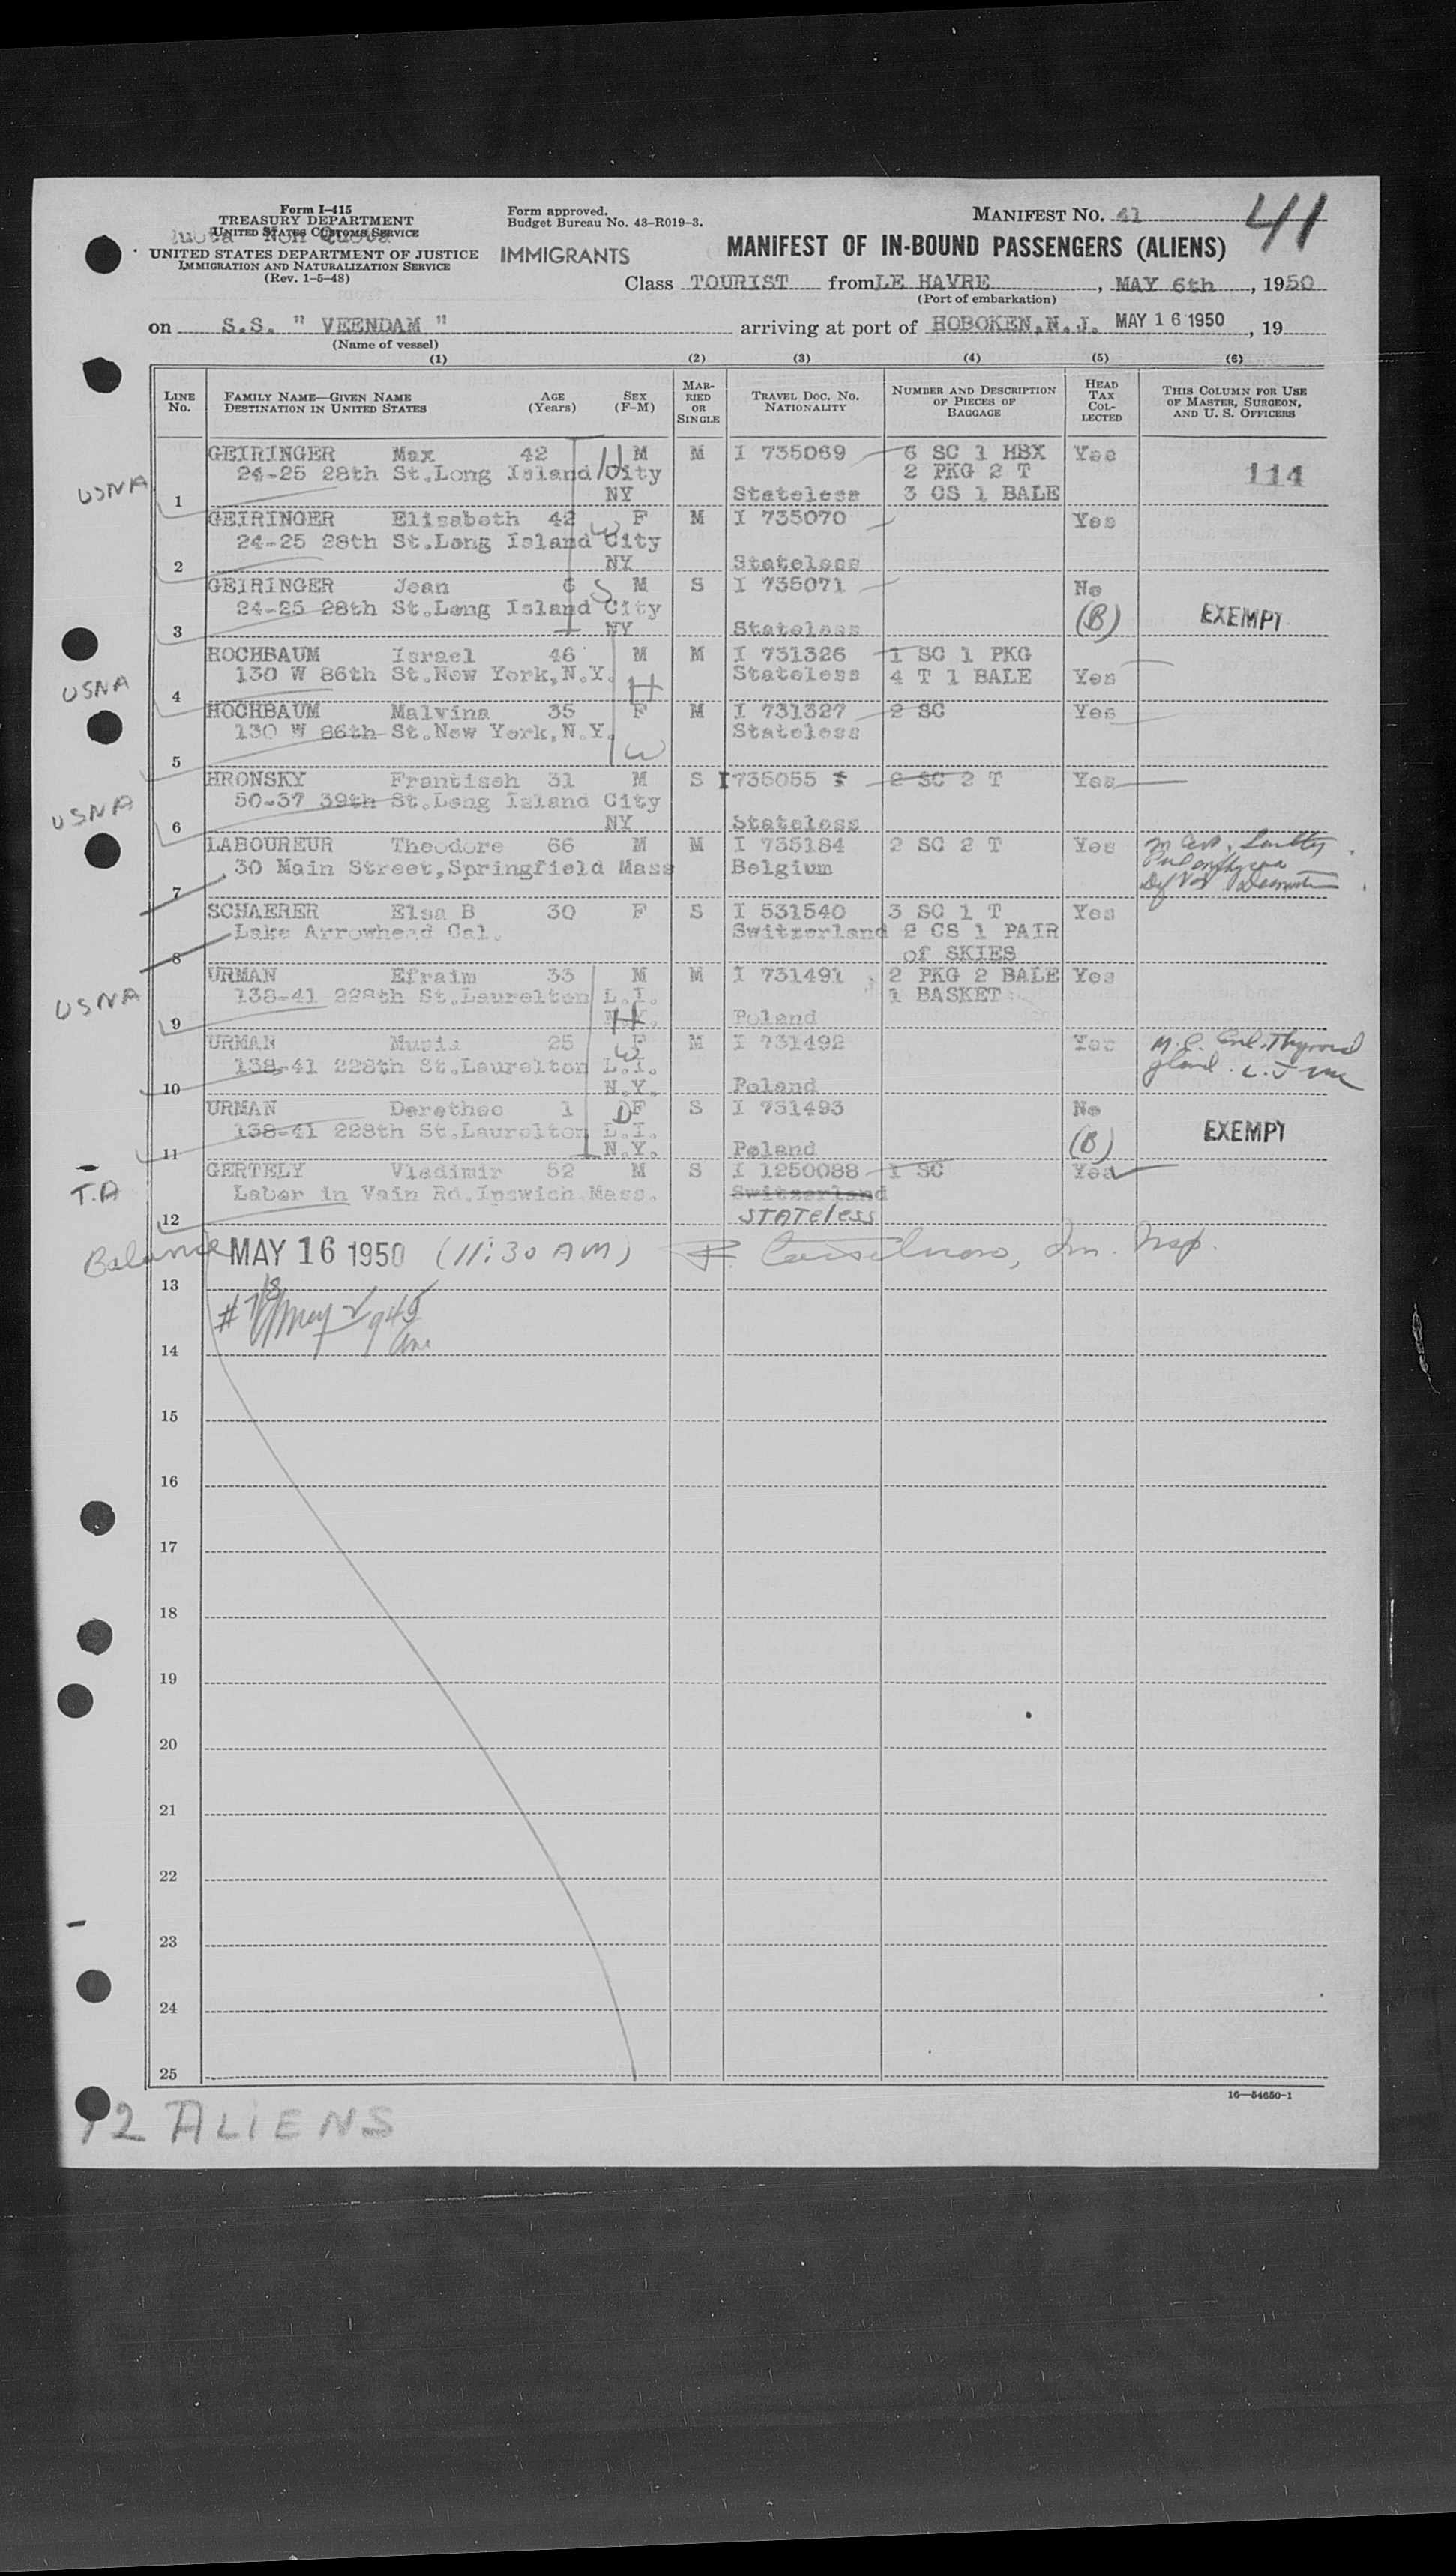 Form I-415
TREASURY DEPARTMENT
UNITED STATES CUSTOMS SERVICE
Quota Non Quota
UNITED STATES DEPARTMENT OF JUSTICE
IMMIGRATION AND NATURALIZATION SERVICE
(Rev. 1-5-48)
Form approved.
Budget Bureau No. 43-R019-3.
IMMIGRANTS
MANIFEST NO. 41
41
MANIFEST OF IN-BOUND PASSENGERS (ALIENS)
Class TOURIST from LE HAVRE, MAY 6th, 1950
(Port of embarkation)
on S.S. " VEENDAM " arriving at port of HOBOKEN, N.J. MAY 16 1950, 19
(Name of vessel)
(1) (2) (3) (4) (5) (6)
LINE No. FAMILY NAME—GIVEN NAME DESTINATION IN UNITED STATES AGE (Years) SEX (F-M) MARRIED OR SINGLE TRAVEL DOC. NO. NATIONALITY NUMBER AND DESCRIPTION OF PIECES OF BAGGAGE HEAD TAX COLLECTED THIS COLUMN FOR USE OF MASTER, SURGEON, AND U. S. OFFICERS
GEIRINGER Max 42 H M M I 735069 6 SC 1 HBX Yes
24-25 28th St.Long Island City 2 PKG 2 T 114
USNA 1 NY Stateless 3 CS 1 BALE
GEIRINGER Elisabeth 42 W F M I 735070 Yes
24-25 28th St.Long Island City
2 NY Stateless
GEIRINGER Jean 6 S M S I 735071 No
24-25 28th St.Long Island City (B) EXEMPT
3 NY Stateless
HOCHBAUM Israel 46 M M I 731326 1 SC 1 PKG
USNA 4 130 W 86th St.New York,N.Y. H Stateless 4 T 1 BALE Yes
HOCHBAUM Malvina 35 F M I 731327 2 SC Yes
130 W 86th St.New York,N.Y. Stateless
5 W
HRONSKY Frantisch 31 M S I 735055 2 SC 2 T Yes
50-37 39th St.Long Island City
USNA 6 NY Stateless
LABOUREUR Theodore 66 M M I 735184 2 SC 2 T Yes
7 30 Main Street,Springfield Mass Belgium
SCHAERER Elsa B 30 F S I 531540 3 SC 1 T Yes
Lake Arrowhead Cal. Switzerland 2 CS 1 PAIR
8 of SKIES
URMAN Efraim 33 M M I 731491 2 PKG 2 BALE Yes
138-41 228th St.Laurelton L.I. 1 BASKET
USNA 9 H N.Y. Poland
URMAN Musia 25 F M I 731492 Yes M.C. Enl. Thyroid
138-41 228th St.Laurelton L.I. W gland.
10 N.Y. Poland
URMAN Derethec 1 D F S I 731493 No
138-41 228th St.Laurelton L.I. (B) EXEMPT
11 N.Y. Poland
GERTELY Vladimir 52 M S I 1250088 1 SC Yes
T.A Labor in Vain Rd.Ipswich Mass. Switzerland
12 STATEless
Balance MAY 16 1950 (11:30 AM) Im. Insp.
13
14
15
16
17
18
19
20
21
22
23
24
25
16—54650-1
12 ALIENS